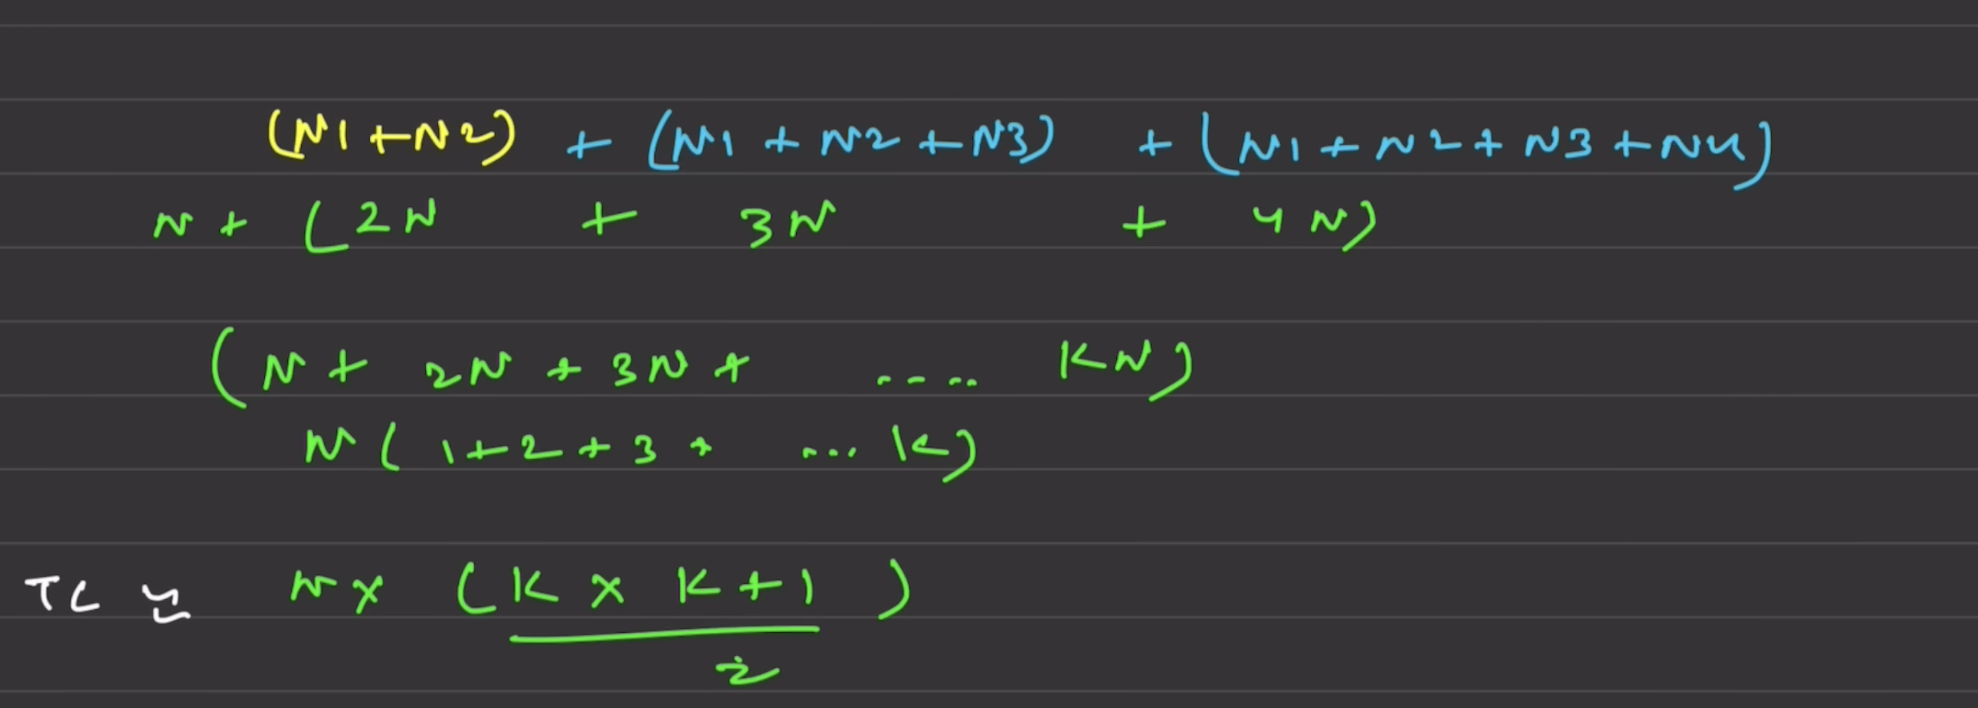 (N1+N2) + (N1 + N2 + N3) + (N1 + N2 + N3 + N4)
N + (2N + 3N + 4N)
(N + 2N + 3N + .... KN)
N(1+2+3+ ... K)
TC ≌ N x (K x K+1)
2